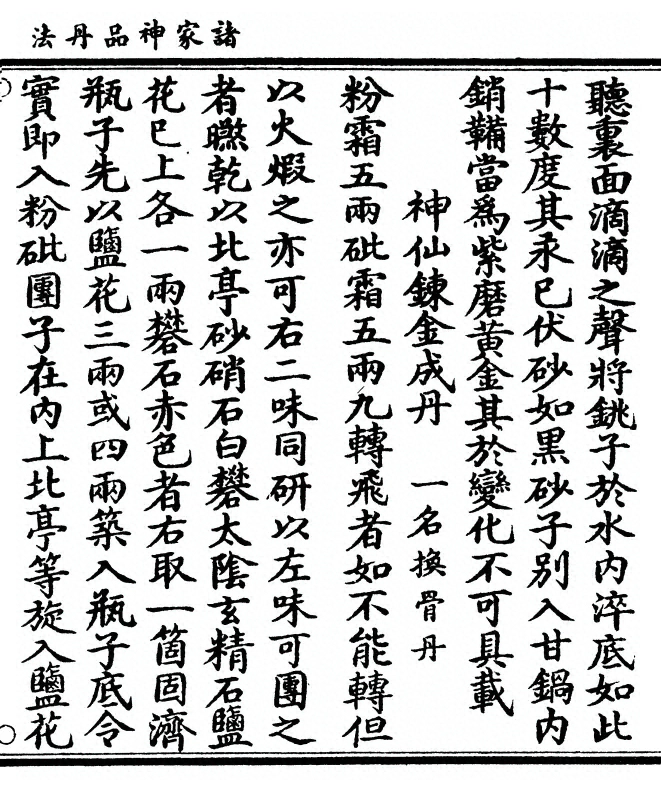 諸家神品丹法
聽裏面滴滴之聲將銚子於水內淬底如此
十數度其汞巳伏砂如黑砂子別入甘鍋內
銷鞴當爲紫磨黃金其於變化不可具載
神仙鍊金成丹 一名換骨丹
粉霜五兩砒霜五兩九轉飛者如不能轉但
以火煆之亦可右二味同研以左味可團之
者㬠乾以北亭砂硝石白礬太陰玄精石鹽
花巳上各一兩礬石赤色者右取一箇固濟
瓶子先以鹽花三兩或四兩築入瓶子底令
實即入粉砒團子在內上北亭等旋入鹽花